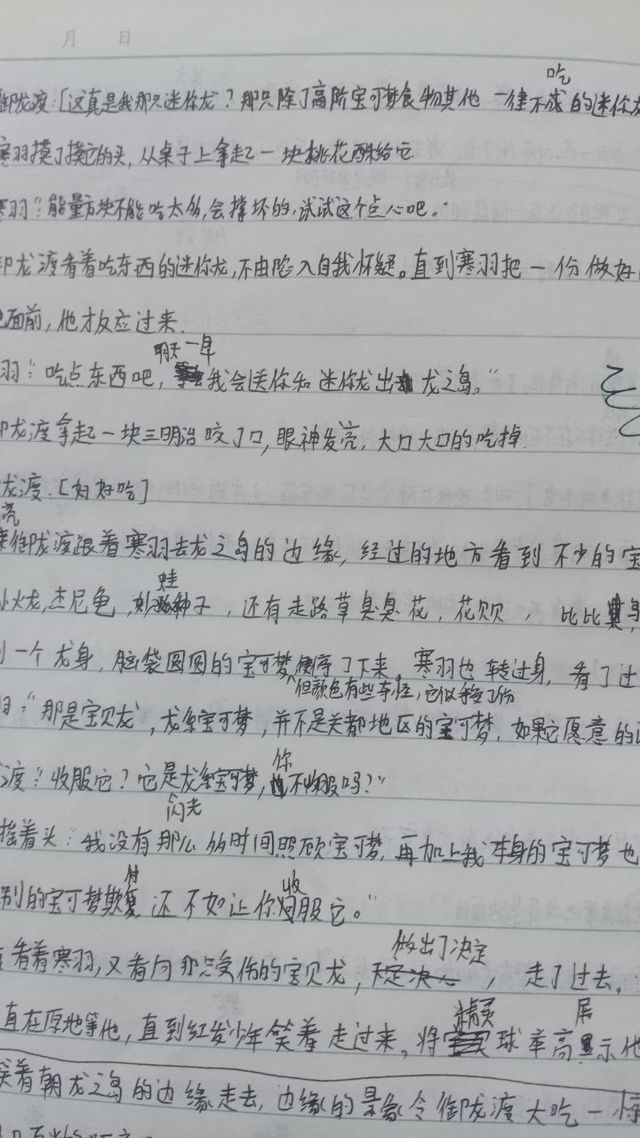 月 日
御龙渡:[这真是我那只迷你龙？那只除了高阶宝可梦食物其他一律不吃的迷你龙
寒羽摸了摸它的头,从桌子上拿起一块桃花酥给它
寒羽:"能量方块不能吃太多,会撑坏的,试试这个点心吧。"
御龙渡看着吃东西的迷你龙,不由陷入自我怀疑。直到寒羽把一份做好
面前,他才反应过来.
羽:"吃点东西吧,明天一早我会送你和迷你龙出龙之岛。"
御龙渡拿起一块三明治咬了口,眼神发亮.大口大口的吃掉
龙渡.[好好吃]
御龙渡跟着寒羽去龙之岛的边缘,经过的地方看到不少的宝
小火龙,杰尼龟,妙蛙种子,还有走路草臭臭花,花贝,比比鸟,
一个龙身,脑袋圆圆的宝可梦停了下来,寒羽也转过身,看了过
但颜色有些奇怪,它似乎受了伤
羽:"那是宝贝龙,龙系宝可梦,并不是关都地区的宝可梦,如果它愿意的
渡:"收服它?它是闪光龙系宝可梦,你不收服吗?"
摇着头:我没有那么多时间照顾宝可梦,再加上我本身的宝可梦也
别的宝可梦欺负 还不如让你收服它。"
看着寒羽,又看向那只受伤的宝贝龙,做出了决定,走了过去,
直在原地等他,直到红发少年笑着走过来,将精灵球举高展示他
笑着朝龙之岛的边缘走去,边缘的景象令御龙渡大吃一惊